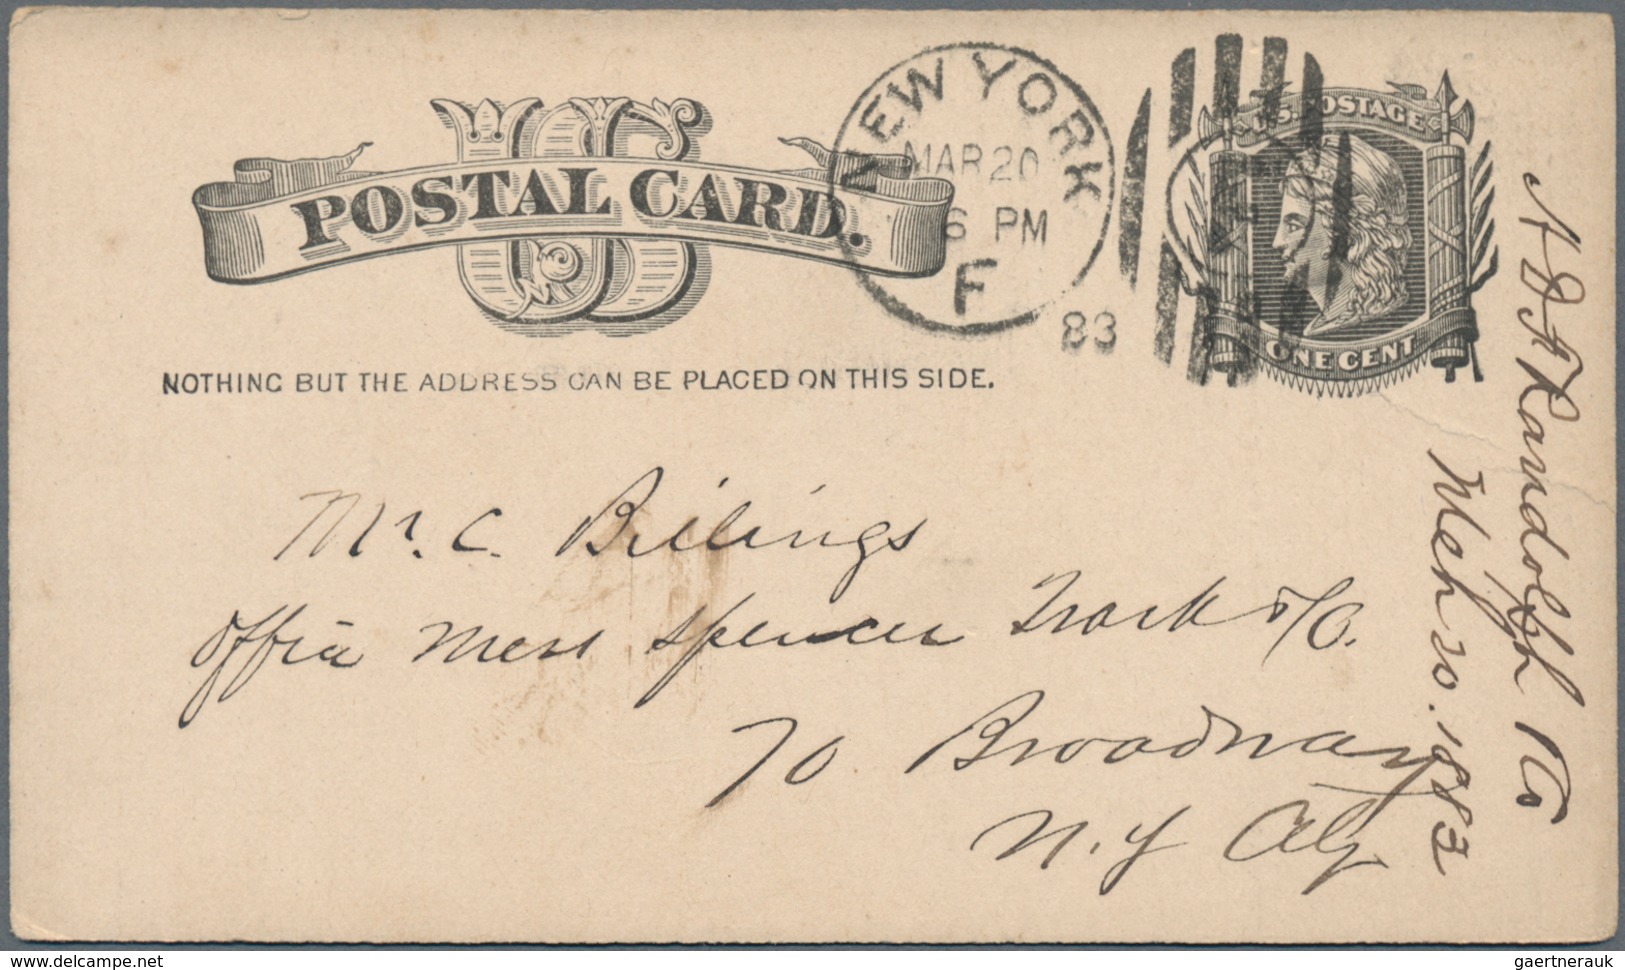 US
POSTAL CARD.
NEW YORK
MAR 20
6 PM
F
83
U.S. POSTAGE
ONE CENT
NOTHING BUT THE ADDRESS CAN BE PLACED ON THIS SIDE.
Mr. C. Billings
Office Mess Spencer Trask & Co.
70 Broadway
N. Y City
Randolph & Co
Mch 20. 1883
delcampe.net
gaertnerauk